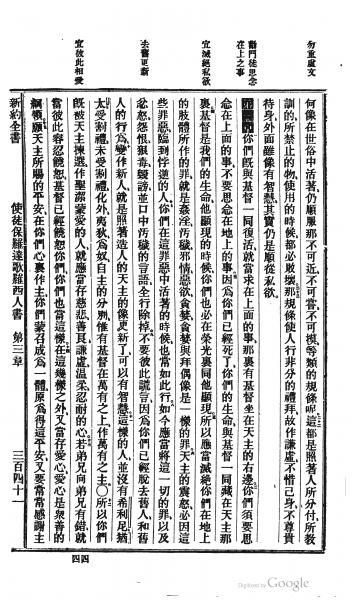 勿重虛文
勸門徒思念在上之事
宜滅絕私欲
去舊更新
宜彼此相愛
何像在世俗中活著仍順服那不可近不可嘗不可摸等類的規條呢這都是照著人所分付所教
訓的所禁止的物使用的時候都必敗壞那規條使人行非分的禮拜故作謙虛不惜己身不尊貴
待身外面雖像有智慧其實仍是順從私欲
你們旣與基督一同復活就當求在上面的事那裏有基督坐在天主的右邊你們須要思
念在上面的事不要思念在地上的事因爲你們已經死了你們的生命與基督一同藏在天主那
裏基督是我們的生命他顯現的時候你們也必在榮光裏同他顯現所以應當滅絕你們在地上
的肢體所作的罪就是姦淫汚穢邪情惡欲貪婪貪婪與拜偶像是一樣的罪天主的震怒必因這
些罪惡臨到悖逆的人你們在這罪惡中活著的時候也常如此行如今應當將這一切的罪以及
忿怒怨恨狠毒毀謗並口中汚穢的言語全行除掉不要彼此謊言因爲你們已經脫去舊人和舊
人的行爲變作新人就是照著造人的天主的像更新了可以有智慧這樣的人並沒有希利尼猶
太受割禮未受割禮化外夷狄爲奴自主的分別惟有基督在萬有之上作萬有之主○所以你們
旣被天主揀選作聖潔蒙愛的人就應當存慈悲善良謙虛溫柔忍耐的心若弟兄向弟兄有錯就
當彼此容忍饒恕基督已經饒恕你們你們也當這樣在這幾樣之外又當存愛心愛心是衆善的
綱領願天主所賜的平安在你們心裏作主你們蒙召成爲一體原爲得這平安又要常常感謝主
新約全書 使徒保羅達歌羅西人書 第三章 三百四十一
四四
Digitized by Google